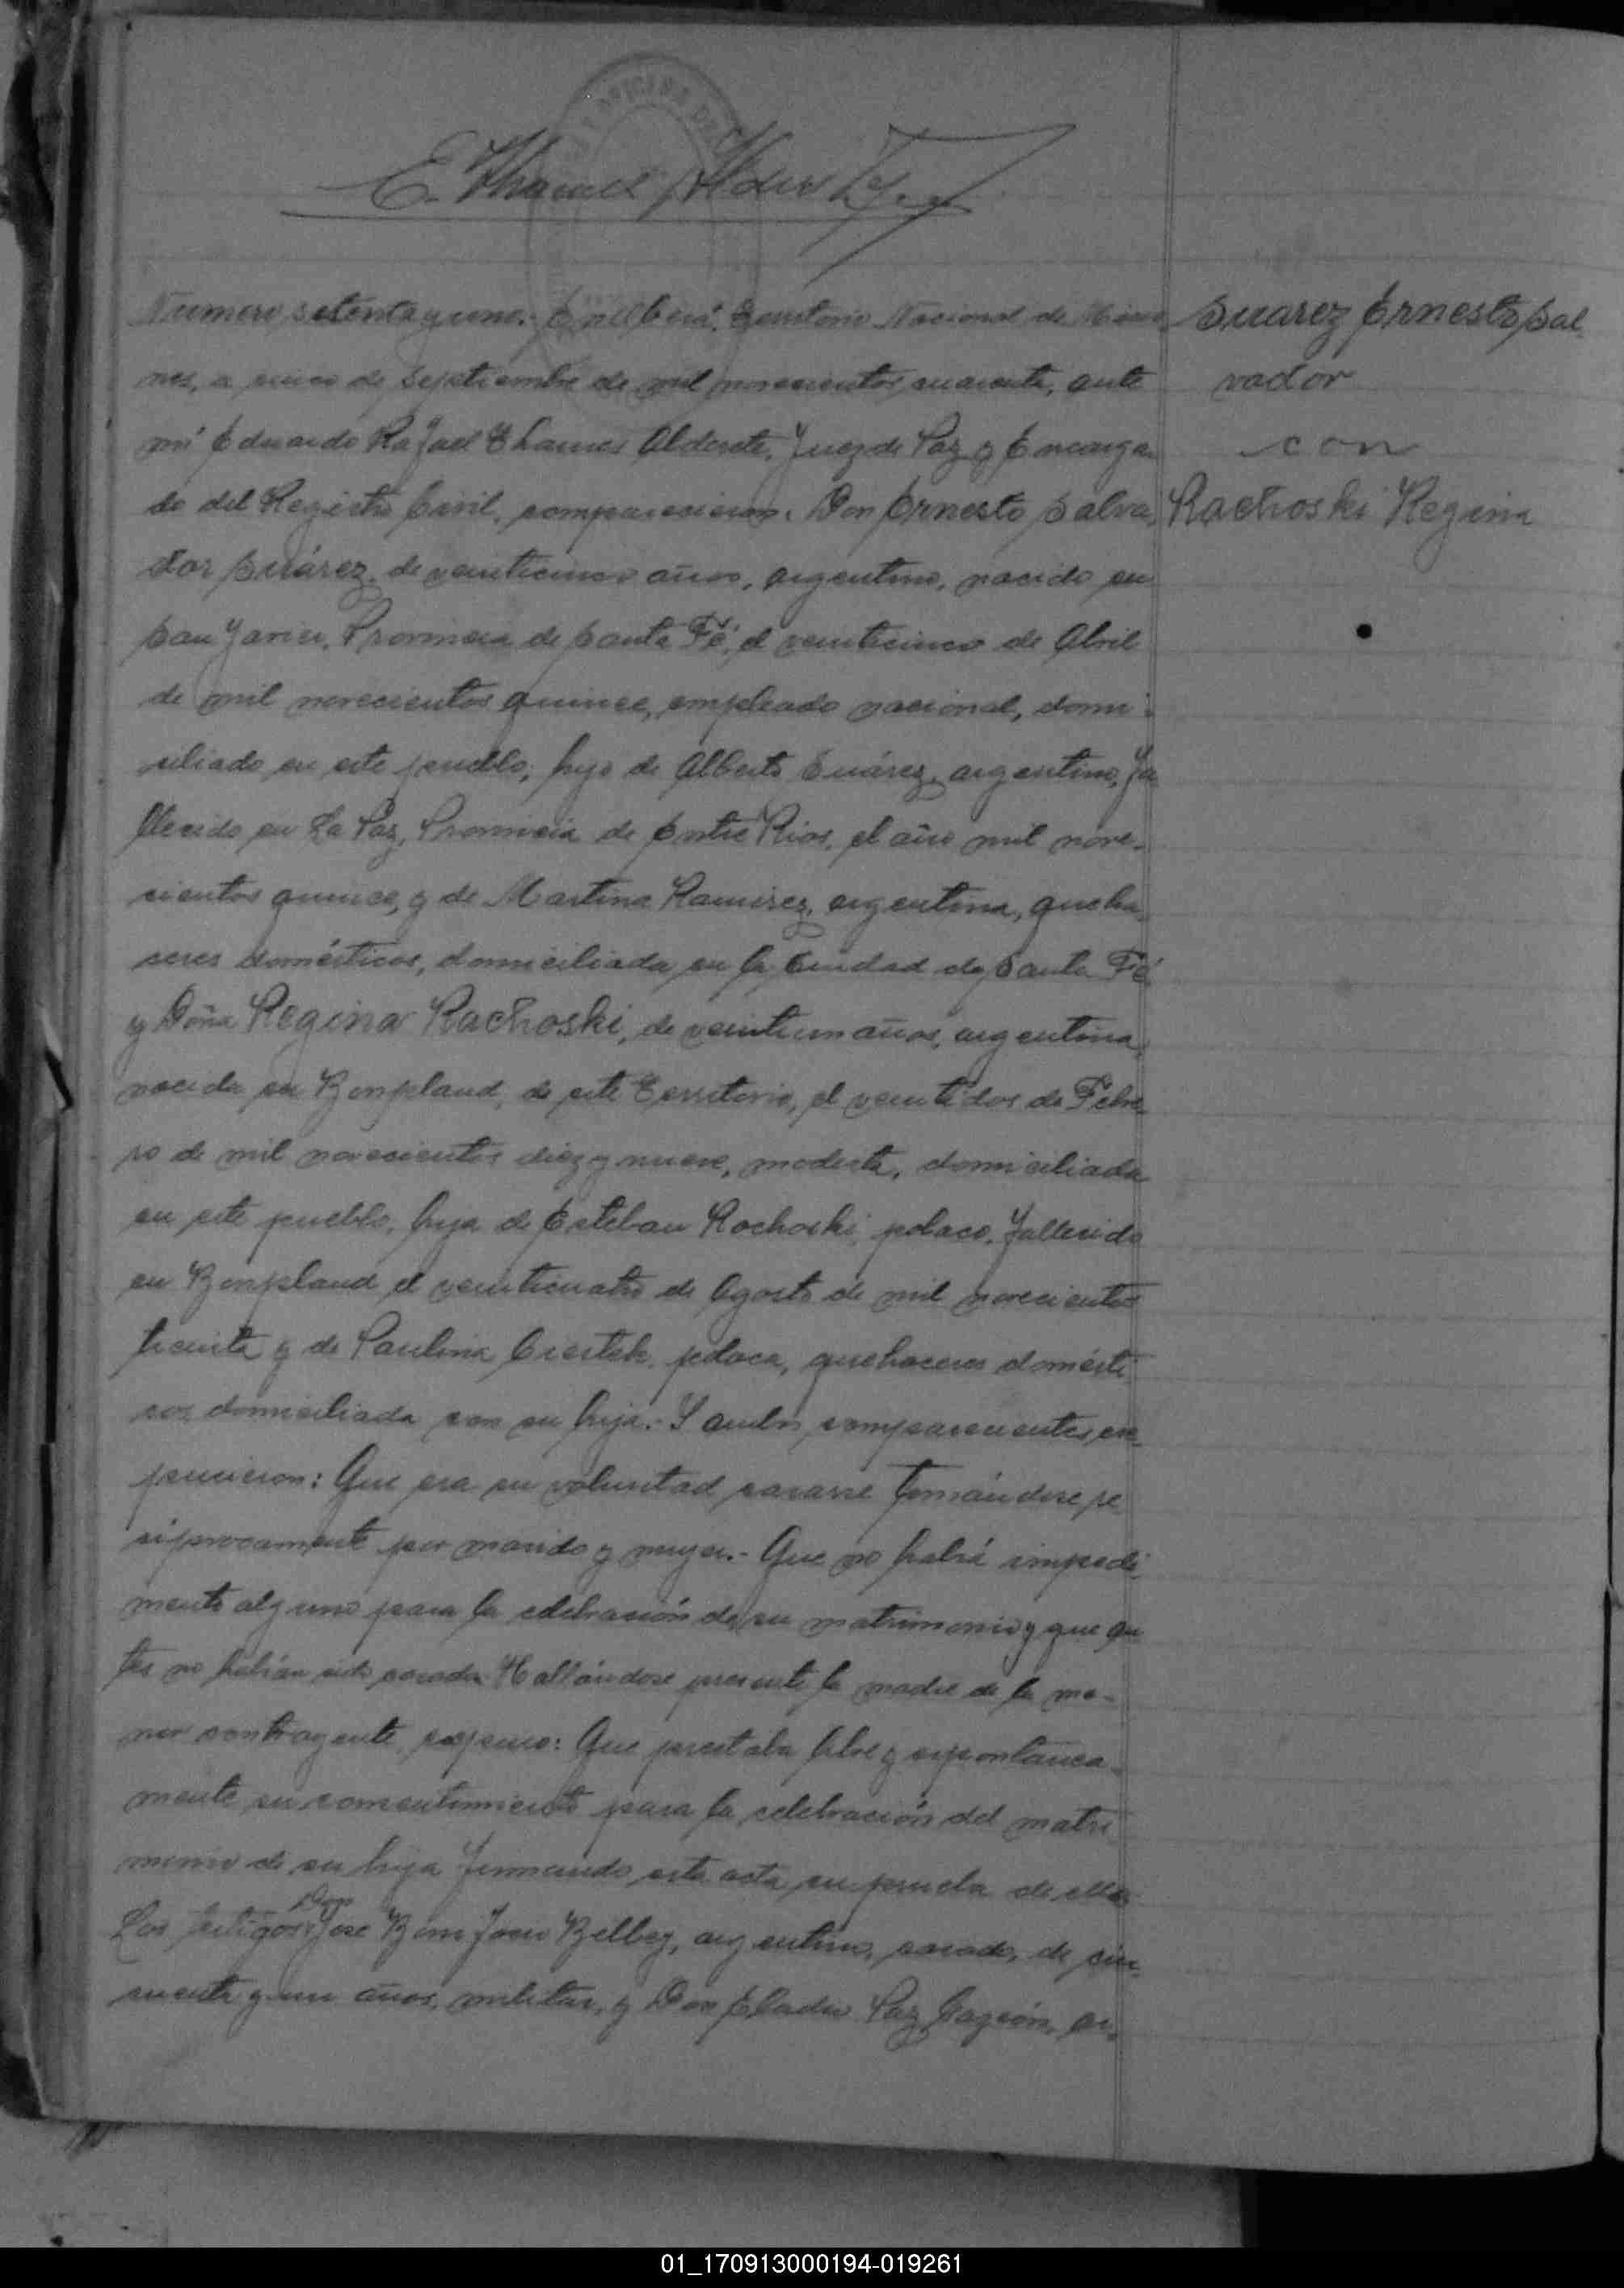 E. Thames Alderete
Numero setenta y uno.- En Oberá, Territorio Nacional de Misio
nes, a cinco de Septiembre de mil novecientos cuarenta, ante
mí Eduardo Rafael Thames Alderete, Juez de Paz y Encarga
do del Registro Civil, comparecieron: Don Ernesto Salva
dor Suárez, de veinticinco años, argentino, nacido en
San Javier, Provincia de Santa Fé, el veinticinco de Abril
de mil novecientos quince, empleado nacional, domi-
ciliado en este pueblo, hijo de Alberto Suárez, argentino, fa
llecido en La Paz, Provincia de Entre Rios, el año mil nove-
cientos quince, y de Martina Ramirez, argentina, queha
ceres domésticos, domiciliada en la Ciudad de Santa Fé
y Doña Regina Rachoski, de veintiun años, argentina,
nacida en Bonpland, de este Territorio, el veintidos de Febre
ro de mil novecientos diez y nueve, modista, domiciliada
en este pueblo, hija de Esteban Rochoski, polaco, fallecido
en Bonpland el veinticuatro de Agosto de mil novecientos
treinta y de Paulina polaca, quehaceres domésti
cos domiciliada con su hija.- Y ambos comparecientes ex
pusieron: Que era su voluntad casarse tomándose re
ciprocamente por marido y mujer.- Que no había impedi
mento alguno para la celebración de su matrimonio y que an
tes no habían sido casados. Hallándose presente la madre de la me-
nor contrayente, expuso: Que prestaba libre y espontánea-
mente su consentimiento para la celebración del matri
monio de su hija firmando esta acta en prueba de ello.
Los testigos Don José Bonifacio argentino, casado, de cin
cuenta y un años, militar, y Don Eladio Paz ar
Suarez Ernesto Sal
vador
con
Rachoski Regina
01_170913000194-019261